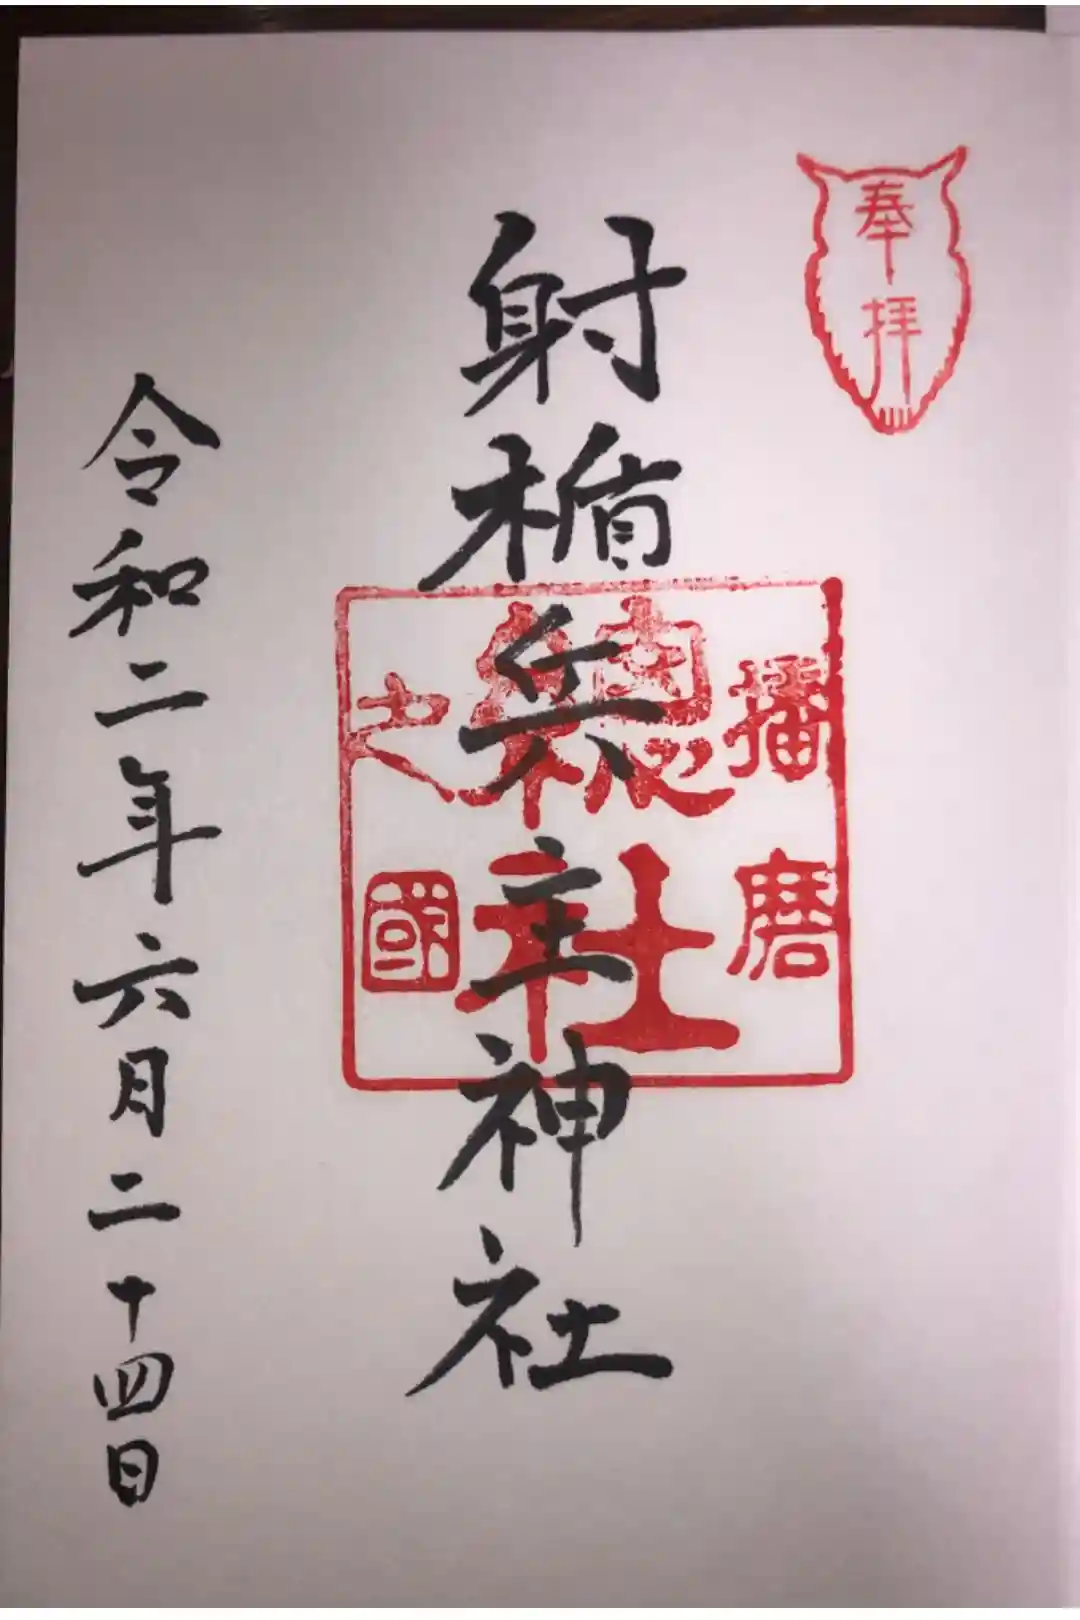 奉拝
射楯兵主神社
播磨
總社
之國
令和二年六月二十四日